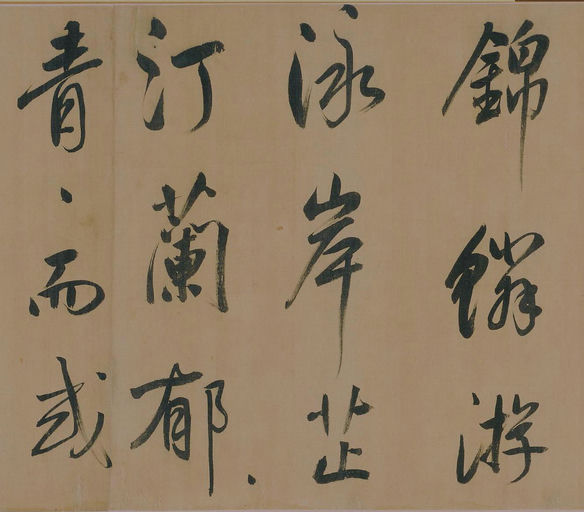 錦鱗游
泳岸芷
汀蘭郁、
青、而或